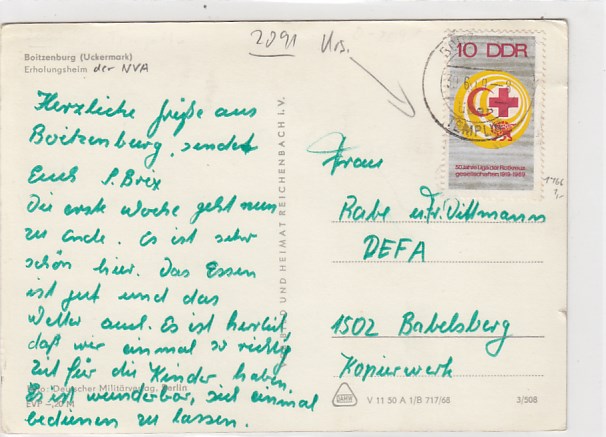 2091 Urs.
Boitzenburg (Uckermark)
Erholungsheim der NVA
Herzliche Grüße aus
Boitzenburg, sendet
Euch S. Brix
Die erste Woche geht nun
zu ende. Es ist sehr
schön hier. Das Essen
ist gut und das
Wetter auch. Es ist herrlich
daß wir einmal so richtig
Zeit für die Kinder haben.
Es ist wunderbar, sich einmal
bedienen zu lassen.
Foto: Deutscher Militärverlag, Berlin
EVP –,20 M
BILD UND HEIMAT REICHENBACH I. V.
10 DDR
50 Jahre Liga der Rotkreuz-
gesellschaften 1919-1969
TEMPLIN
1466
Frau
Rabe u. Fr. Dittmann
DEFA
1502 Babelsberg
Kopierwerk
V 11 50 A 1/B 717/68
3/508